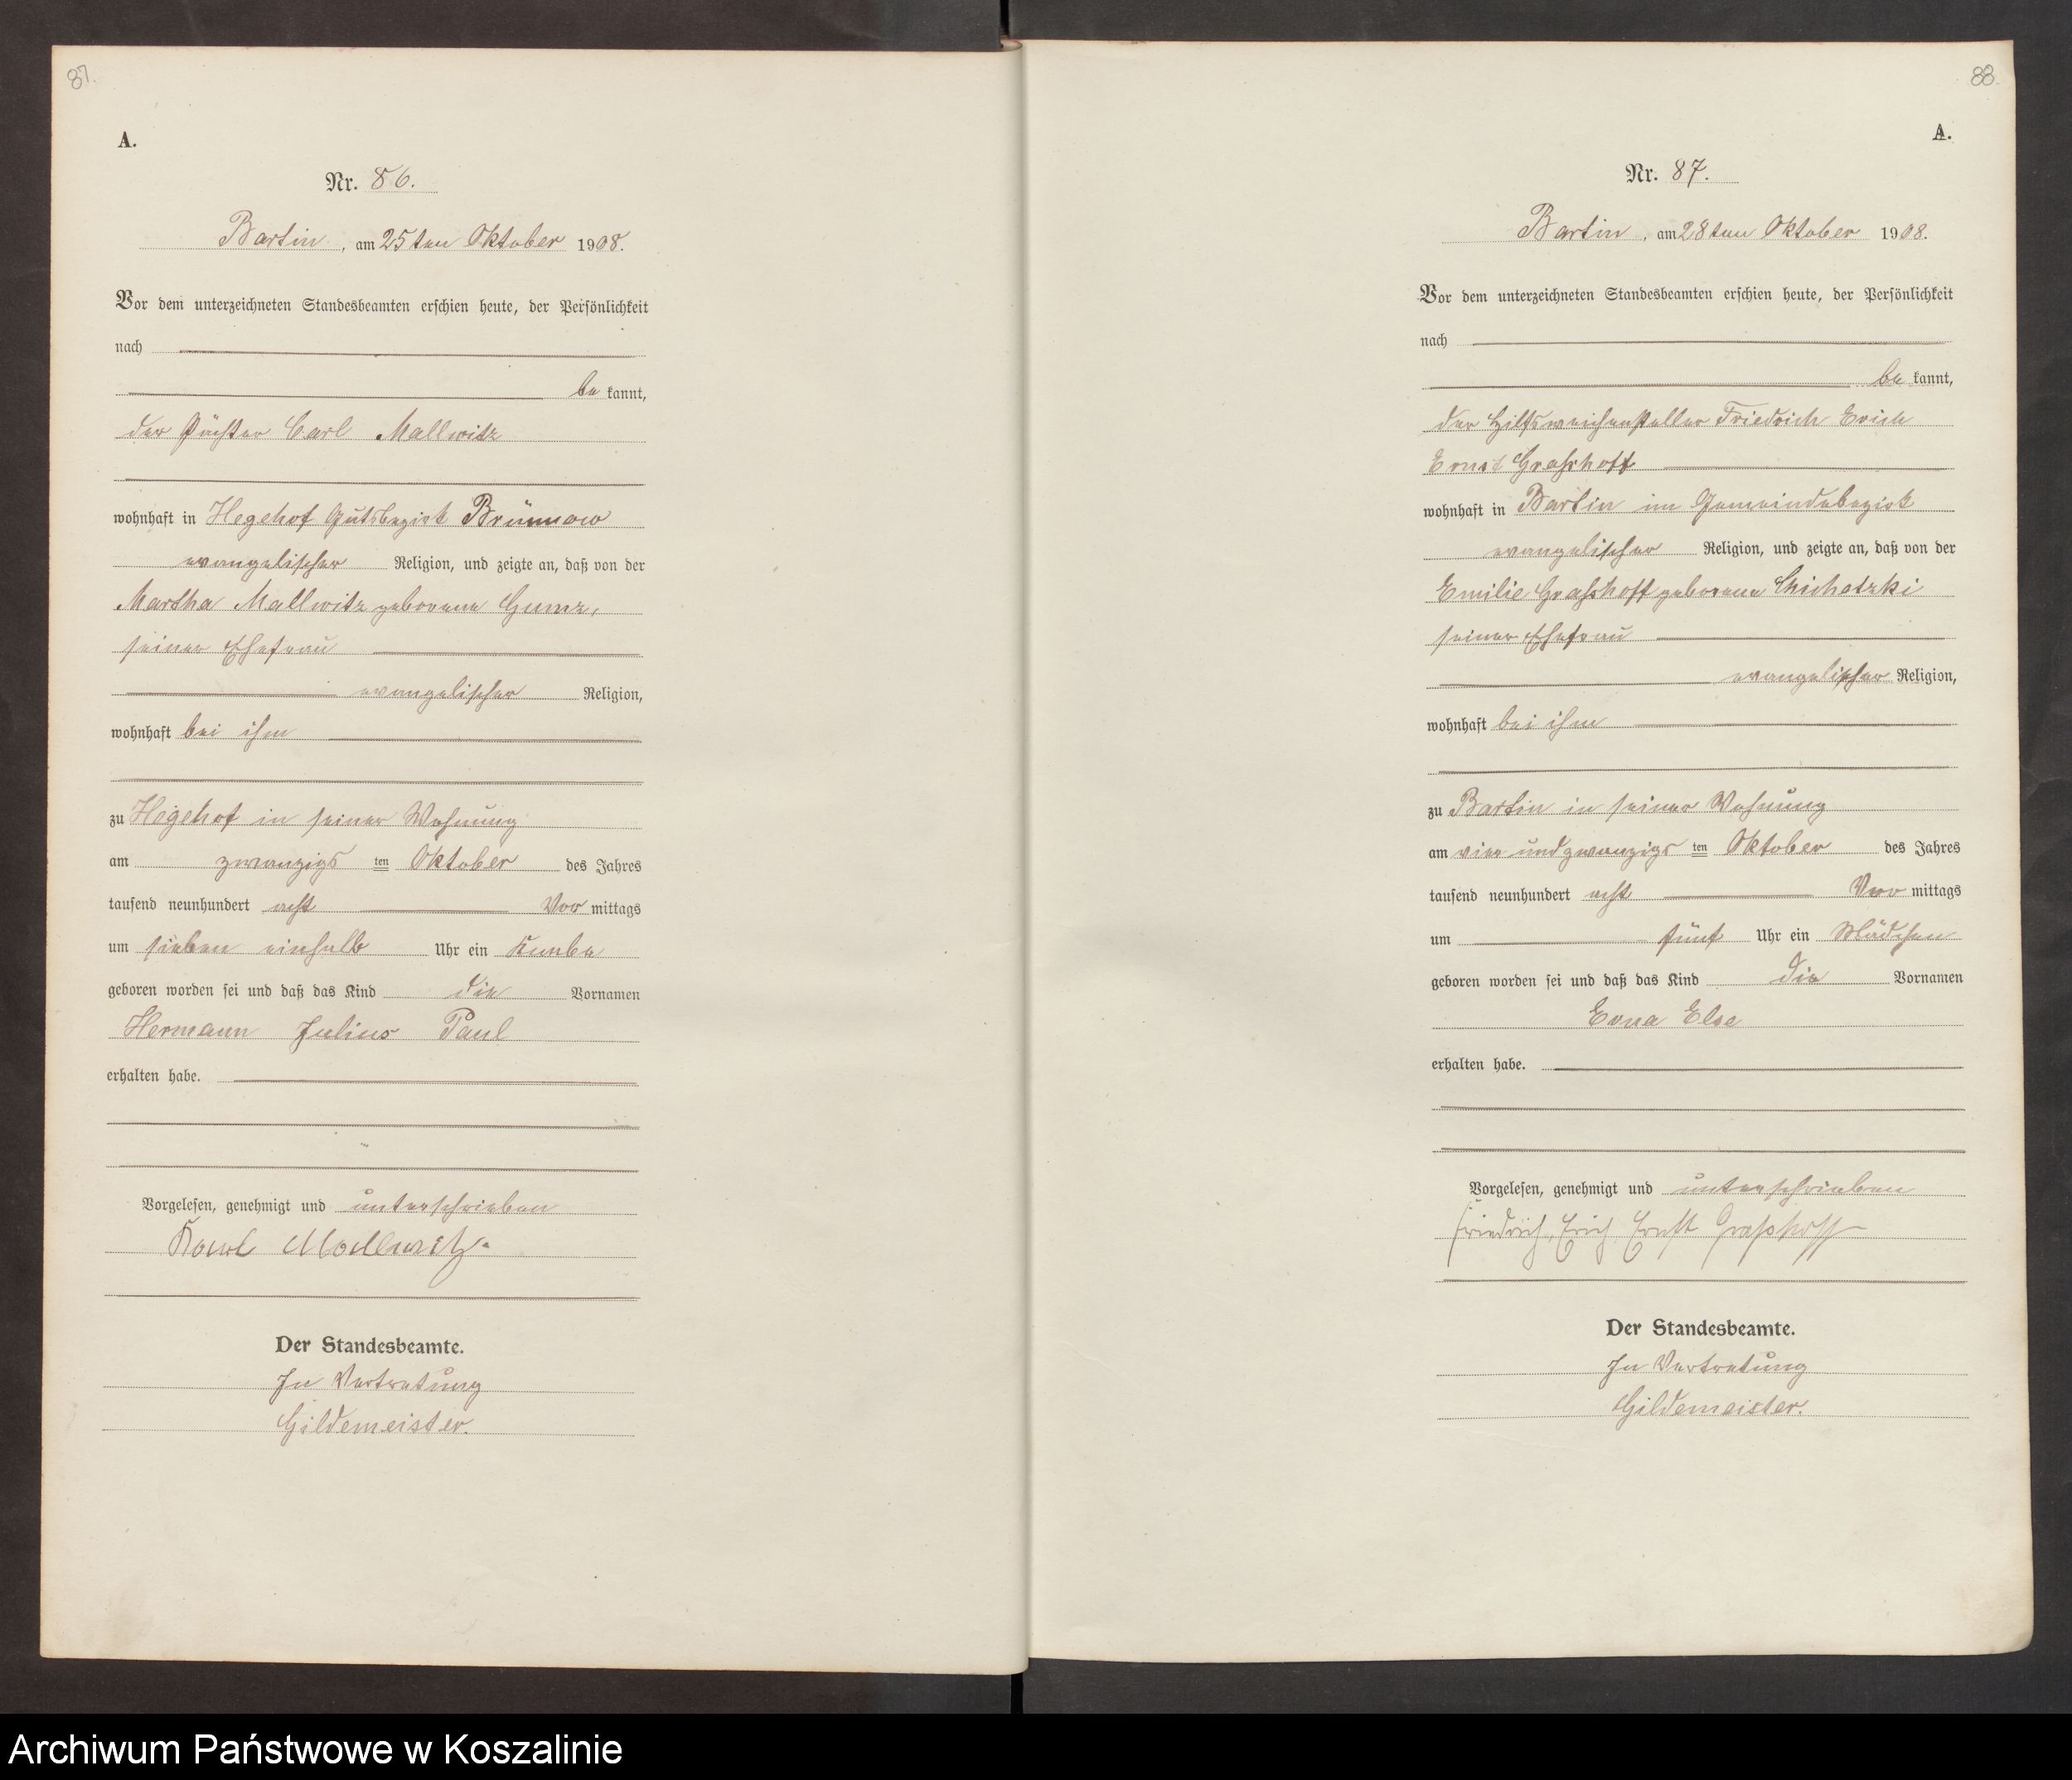 87.
A.
Nr. 86.
Bartin, am 25ten Oktober 1908.
Vor dem unterzeichneten Standesbeamten erschien heute, der Persönlichkeit
nach
be kannt,
der Pächter Carl Mallwitz
wohnhaft in Hegehof Gutsbezirk Brünnow
evangelischer Religion, und zeigte an, daß von der
Martha Mallwitz geborene Gumz,
seiner Ehefrau
evangelischer Religion,
wohnhaft bei ihm
zu Hegehof in seiner Wohnung
am zwanzigs ten Oktober des Jahres
tausend neunhundert acht Vor mittags
um sieben einhalb Uhr ein Knabe
geboren worden sei und daß das Kind die Vornamen
Hermann Julius Paul
erhalten habe.
Vorgelesen, genehmigt und unterschrieben
Karl Mallwitz.
Der Standesbeamte.
In Vertretung
Gildemeister.
88.
A.
Nr. 87.
Bartin, am 28ten Oktober 1908.
Vor dem unterzeichneten Standesbeamten erschien heute, der Persönlichkeit
nach
be kannt,
der Hilfsweichensteller Friedrich Erich
Ernst Grasshoff
wohnhaft in Bartin im Gemeindebezirk
evangelischer Religion, und zeigte an, daß von der
Emilie Grasshoff geborene
seiner Ehefrau
evangelischer Religion,
wohnhaft bei ihm
zu Bartin in seiner Wohnung
am vier und zwanzigs ten Oktober des Jahres
tausend neunhundert acht Vor mittags
um fünf Uhr ein Mädchen
geboren worden sei und daß das Kind die Vornamen
Erna Else
erhalten habe.
Vorgelesen, genehmigt und unterschrieben
Friedrich, Erich, Ernst Grasshoff
Der Standesbeamte.
In Vertretung
Gildemeister.
Archiwum Państwowe w Koszalinie